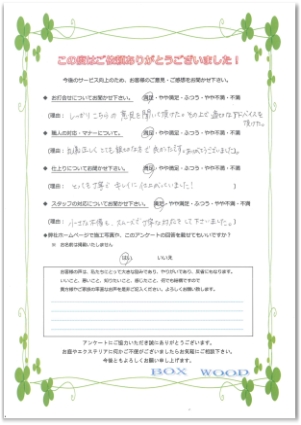 この度はご依頼ありがとうございました！
今後のサービス向上のため、お客様のご意見・ご感想をお聞かせ下さい。
◆ お打合せについてお聞かせ下さい。 満足・やや満足・ふつう・やや不満・不満
（理由： しっかりこちらの意見を聞いて頂いたもの上で 適切なアドバイスを頂けた。）
◆ 職人の対応・マナーについて。 満足・やや満足・ふつう・やや不満・不満
（理由： 礼儀正しく とても親切な方で 良かったです。ありがとうございました。）
◆ 仕上りについてお聞かせ下さい。 満足・やや満足・ふつう・やや不満・不満
（理由： とっても丁寧で キレイに していました！ ）
◆ スタッフの対応についてお聞かせ下さい。 満足・やや満足・ふつう・やや不満・不満
（理由： ）
◆ 弊社ホームページで施工写真や、このアンケートの回答を載せてもいいですか？
※ お名前は掲載いたしません
はい いいえ
お客様の声は、私たちにとって大きな励みであり、やりがいであり、反省にもなります。
いいこと、悪いこと、知りたいこと、感じたこと、何でも結構ですので
貴方様やご家族の率直なお声を是非ご記入ください。よろしくお願い致します。
アンケートにご協力いただき誠にありがとうございます。
お庭やエクステリアに何かご不便がございましたらお気軽にご相談下さい。
今後ともよろしくお願い申し上げます。
BOX WOOD